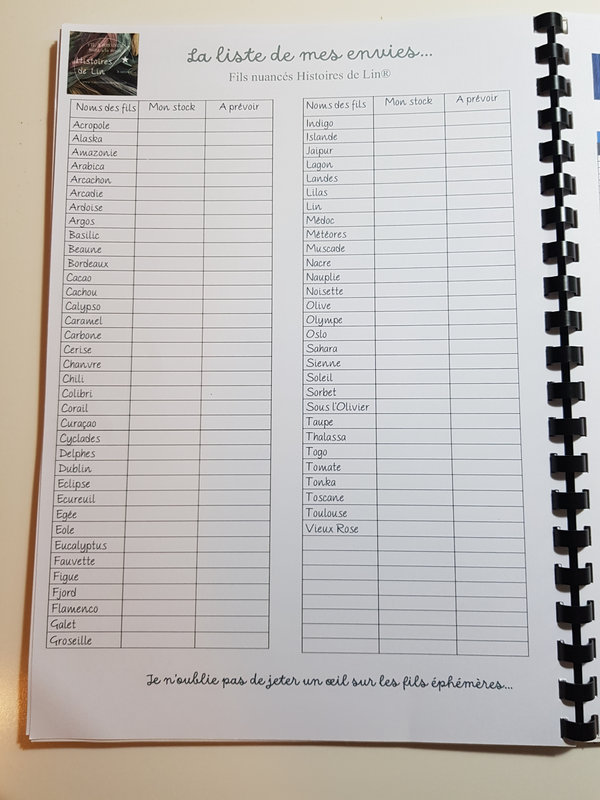 Histoires
de Lin
La liste de mes envies...
Fils nuancés Histoires de Lin®
Noms des fils Mon stock A prévoir
Acropole
Alaska
Amazonie
Arabica
Arcachon
Arcadie
Ardoise
Argos
Basilic
Beaune
Bordeaux
Cacao
Cachou
Calypso
Caramel
Carbone
Cerise
Chanvre
Chili
Colibri
Corail
Curaçao
Cyclades
Delphes
Dublin
Eclipse
Ecureuil
Egée
Eole
Eucalyptus
Fauvette
Figue
Fjord
Flamenco
Galet
Groseille
Noms des fils Mon stock A prévoir
Indigo
Islande
Jaipur
Lagon
Landes
Lilas
Lin
Médoc
Météores
Muscade
Nacre
Nauplie
Noisette
Olive
Olympe
Oslo
Sahara
Sienne
Soleil
Sorbet
Sous l'Olivier
Taupe
Thalassa
Togo
Tomate
Tonka
Toscane
Toulouse
Vieux Rose
Je n'oublie pas de jeter un œil sur les fils éphémères...